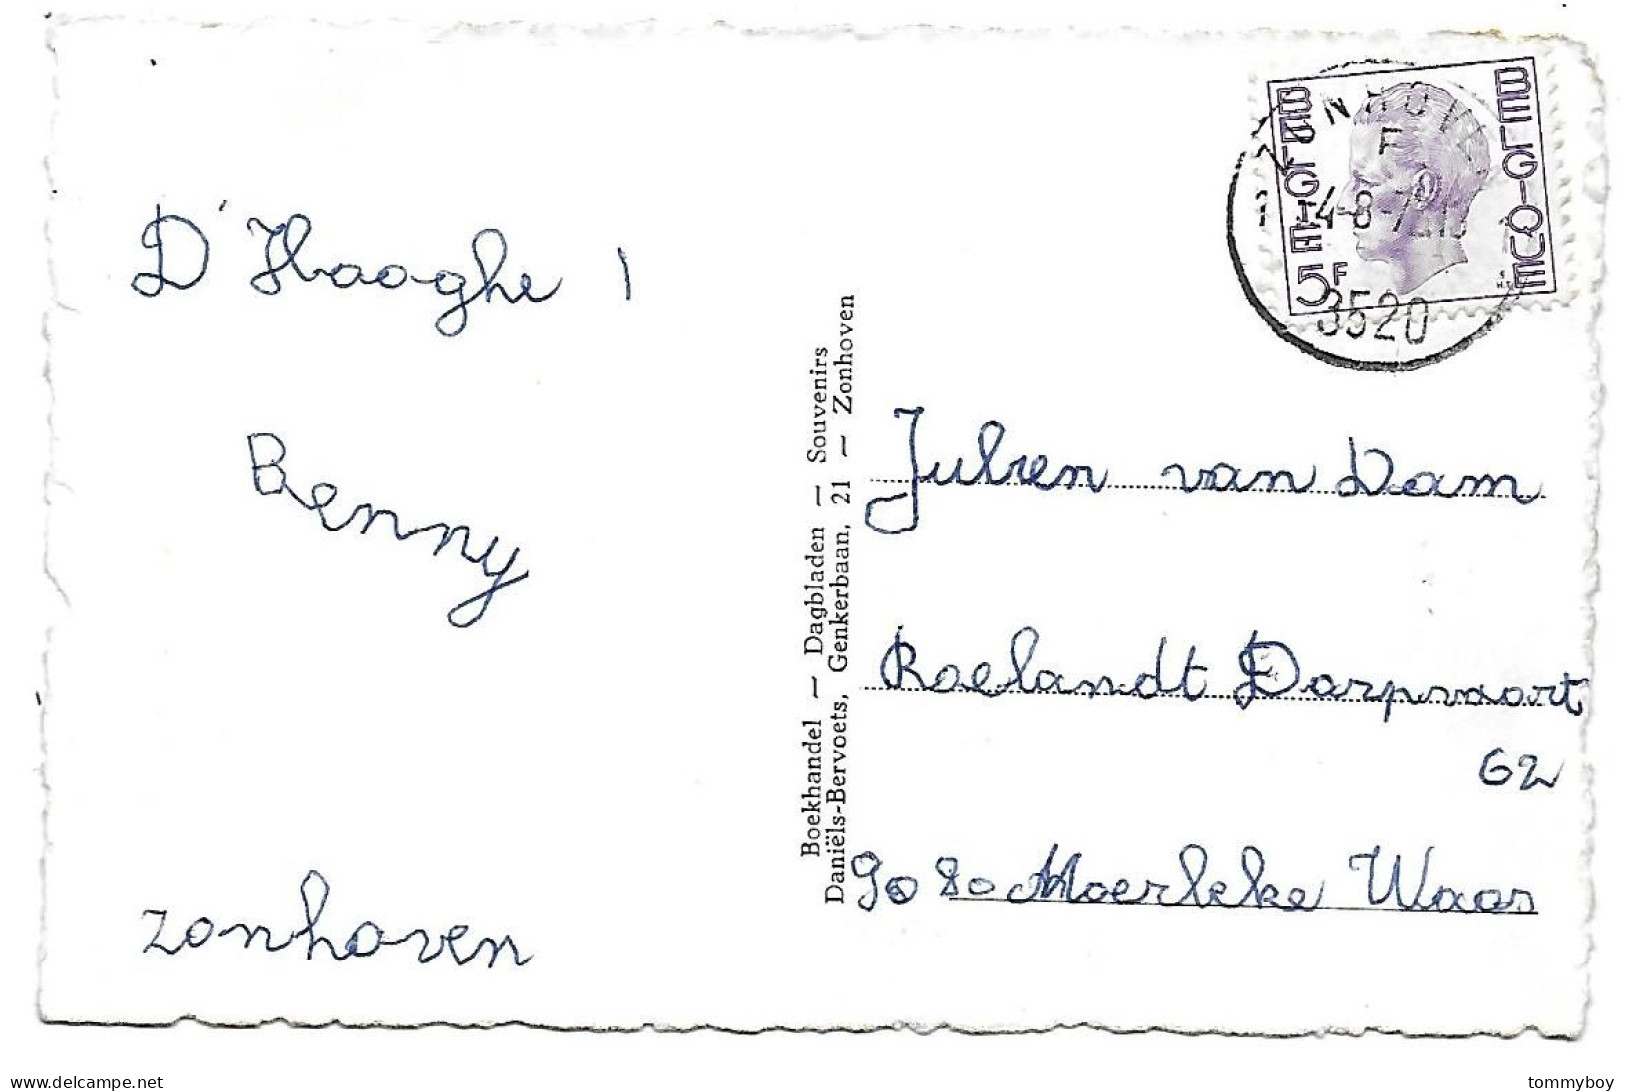 D'Haaghe 1
Benny
zonhoven
Boekhandel — Dagbladen — Souvenirs
Daniëls-Bervoets, Genkerbaan, 21 — Zonhoven
BELGIE BELGIQUE
5F
ZONHOVEN
F
4-8-7
3520
Julien van Dam
Roelandt Dorpvaart
62
9080 Moerleke Waas
delcampe.net
tommyboy